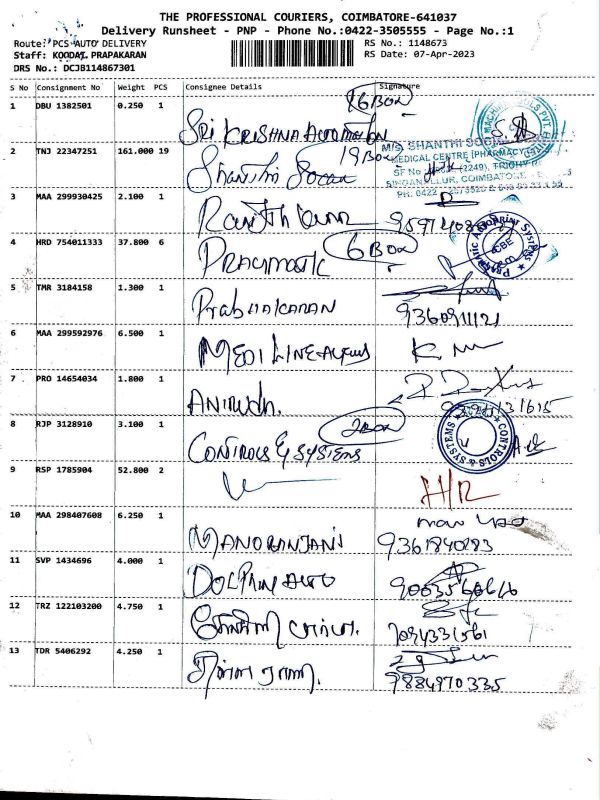 THE PROFESSIONAL COURIERS, COIMBATORE-641037
Delivery Runsheet - PNP - Phone No.:0422-3505555 - Page No.:1
Route: PCS AUTO DELIVERY
RS No.: 1148673
Staff: KOODAL PRAPAKARAN
RS Date: 07-Apr-2023
DRS No.: DCJB114867301
S No Consignment No Weight PCS Consignee Details Signature
6 Box
1 DBU 1382501 0.250 1
SRI KRISHNA AUTOMATION
2 TNJ 22347251 161.000 19
19 Box
M/S. SHANTHI SOCIAL
MEDICAL CENTRE (PHARMACY)
Shanthi Social
SINGANALLUR, COIMBATORE
3 MAA 299930425 2.100 1
4 HRD 754011333 37.800 6
6 Box
PRAGMATIC
5 TMR 3184158 1.300 1
PrabHAKARAN
9360911121
6 MAA 299592976 6.500 1
MEDI LINE
7 PRO 14654034 1.800 1
ANIRUDH.
8 RJP 3128910 3.100 1
2 Box
CONTROLS & SYSTEMS
CONTROLS & SYSTEMS
9 RSP 1785904 52.800 2
10 MAA 298407608 6.250 1
MANORANJANI
9361840283
11 SVP 1434696 4.000 1
DOLPHIN AUTO
12 TRZ 122103200 4.750 1
7094331561
13 TDR 5406292 4.250 1
9884970335